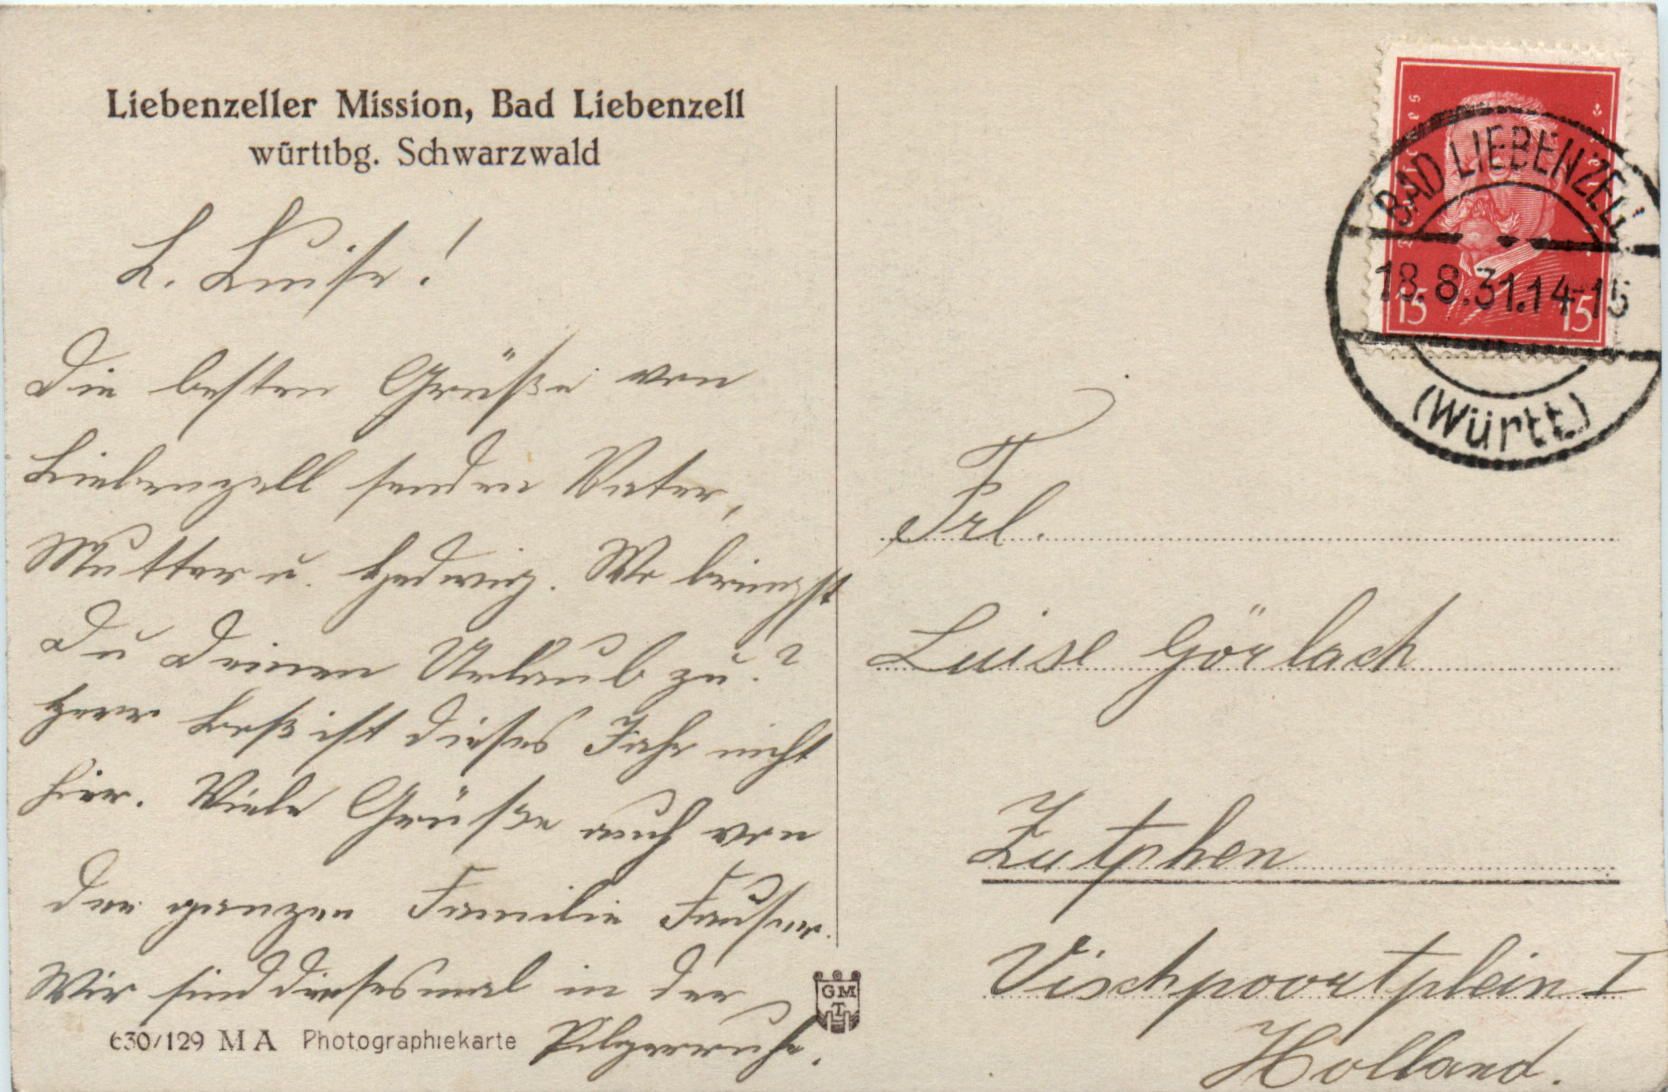 Liebenzeller Mission, Bad Liebenzell
württbg. Schwarzwald
L. Luise!
Die besten Grüße von
Liebenzell senden Vater,
Mutter u. Hedwig. Wo bringst
Du Deinen Urlaub zu?
Herr ist dieses Jahr nicht
hier. Viele Grüße auch von
der ganzen Familie Fauser.
Wir sind diesesmal in der
Pilgerruhe.
630/129 MA Photographiekarte
GM
T
Deutsches Reich
15 15
BAD LIEBENZELL
18.8.31.14-15
(Württ)
Frl.
Luise Görlach
Zutphen
Vischpoortplein I
Holland.